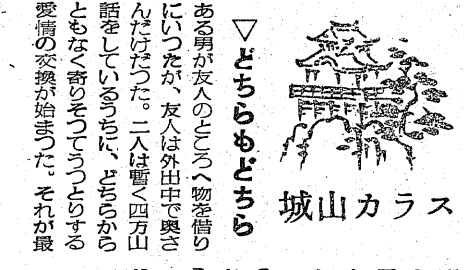 城山カラス
▽どちらもどちら
ある男が友人のところへ物を借り
にいつたが、友人は外出中で奥さ
んだけだつた。二人は暫く四方山
話をしているうちに、どちらから
ともなく寄りそつてうつとりする
愛情の交換が始まつた。それが最